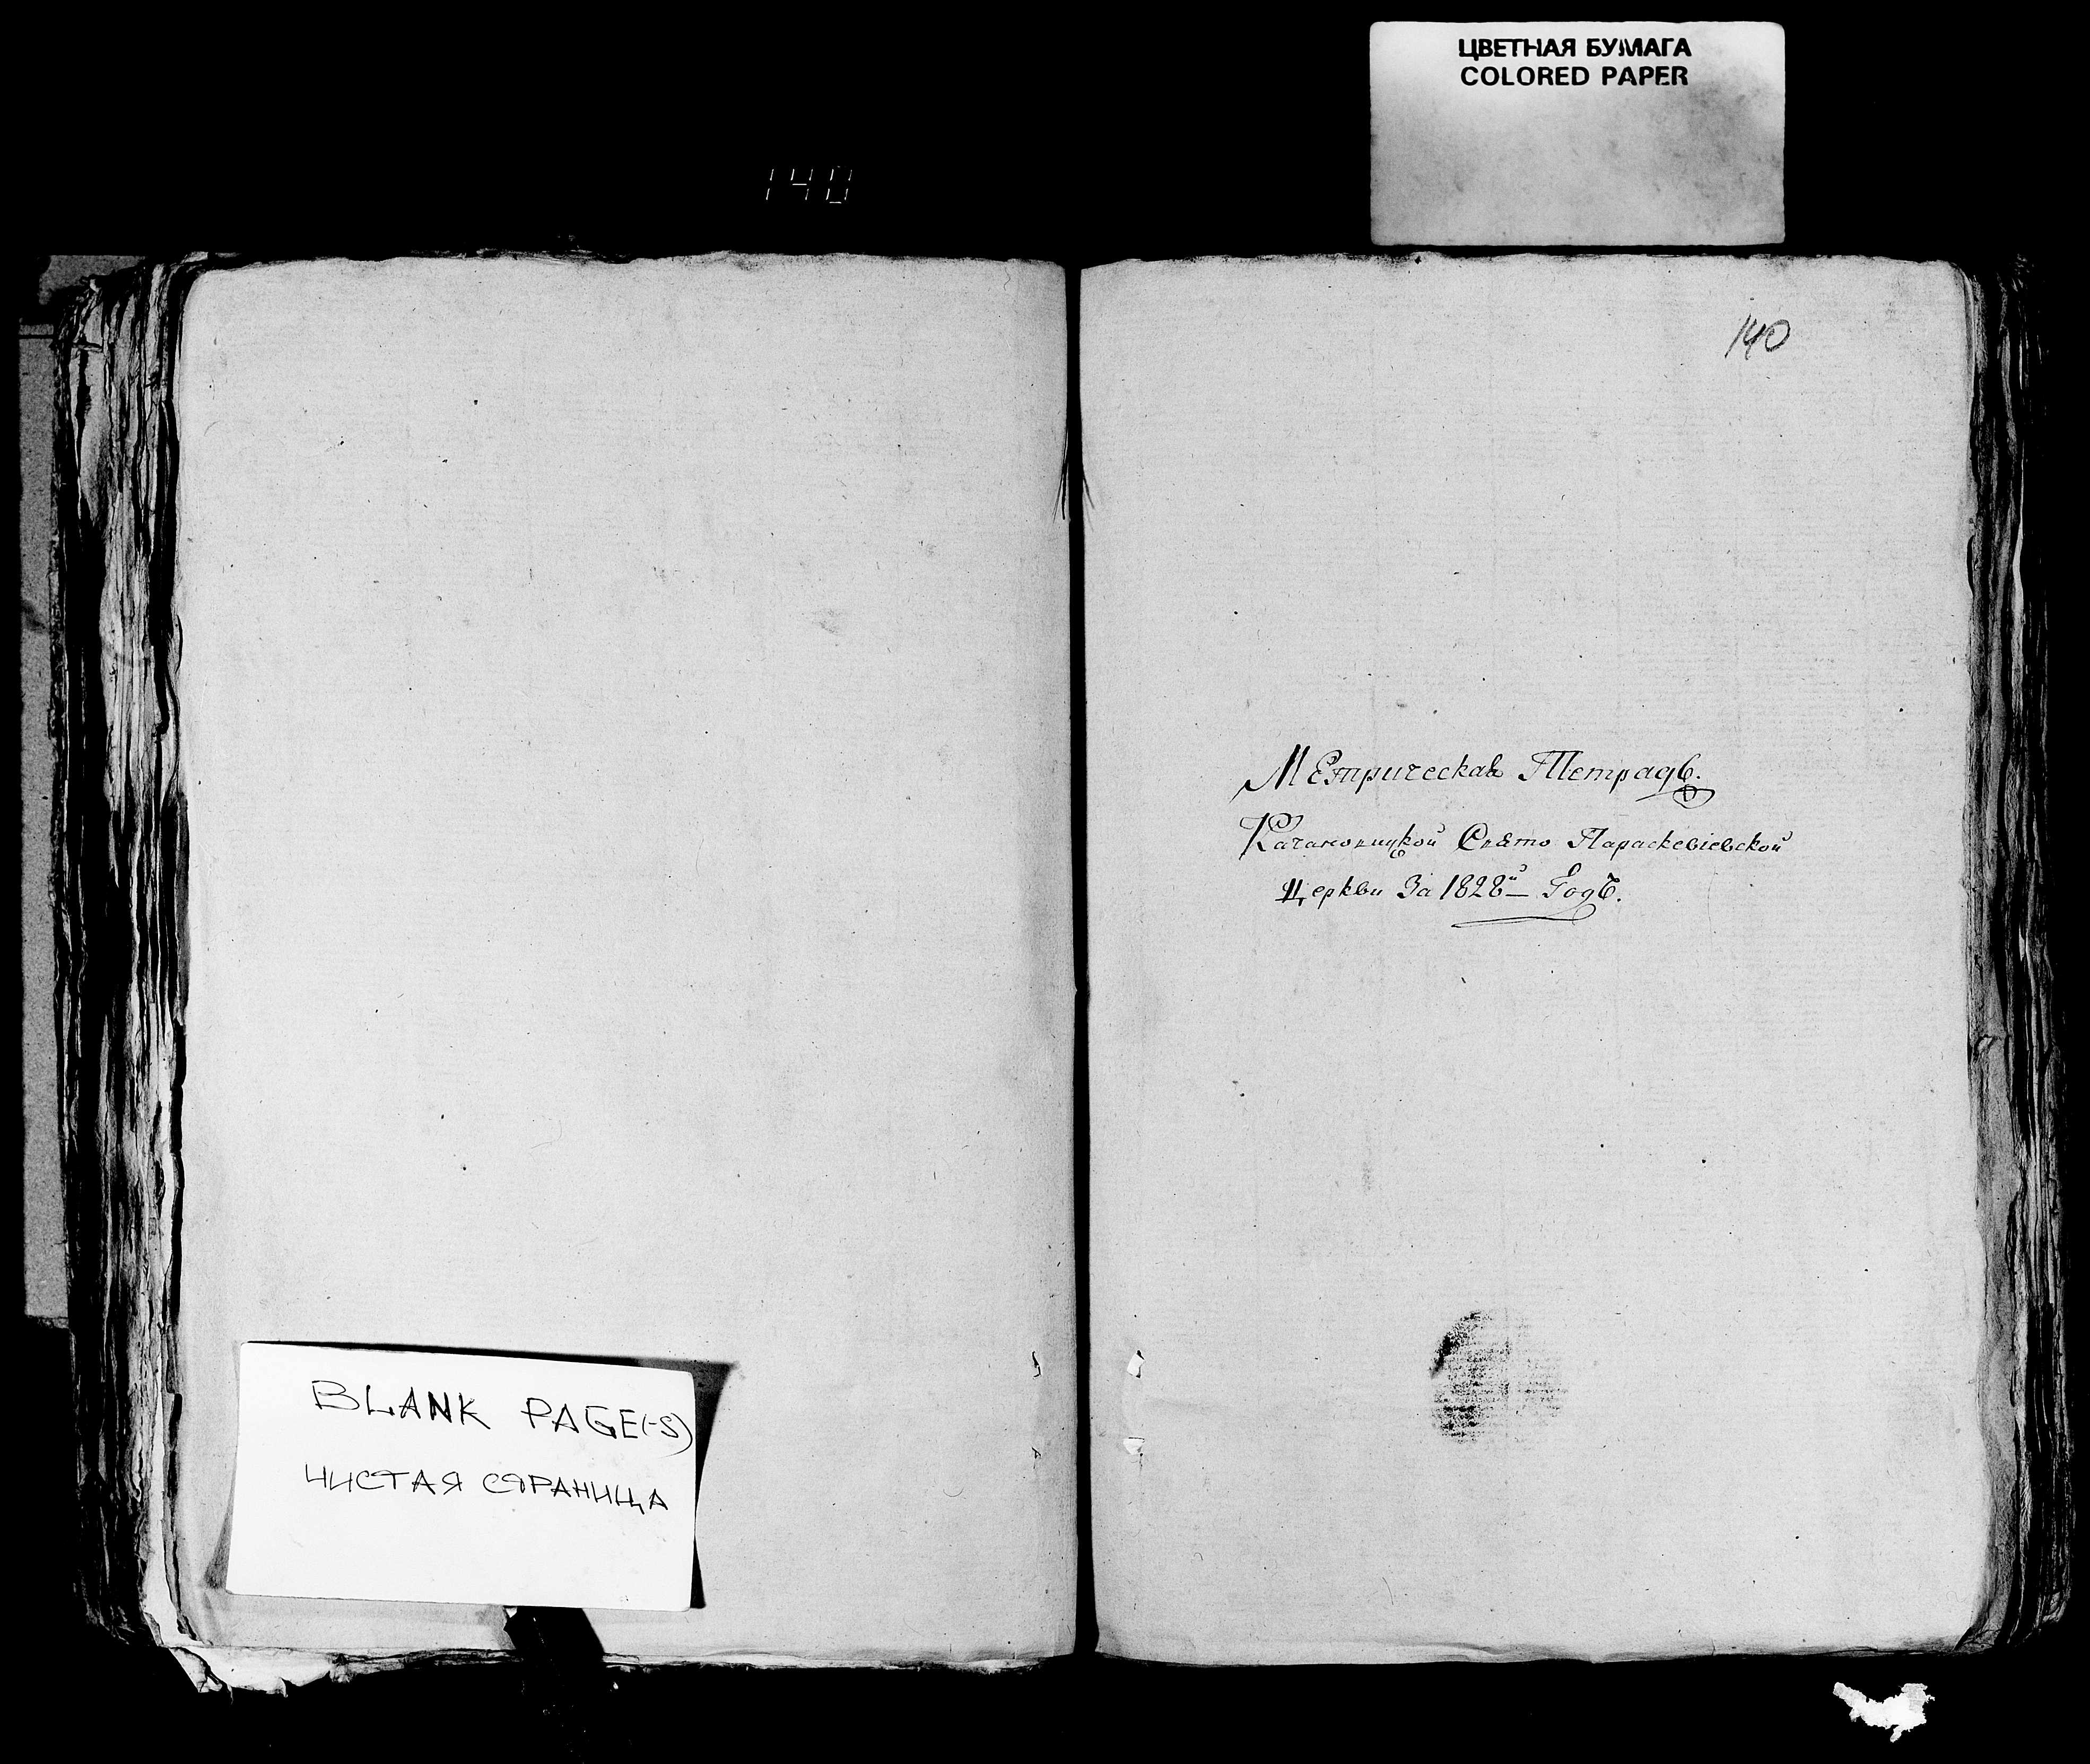 ЦВЕТНАЯ БУМАГА
COLORED PAPER
140
140
Метрическая Тетрадь.
Качановицкой Свято Параскевіевской
Церкви За 1828й Годъ.
BLANK PAGE(-S)
ЧИСТАЯ СТРАНИЦА